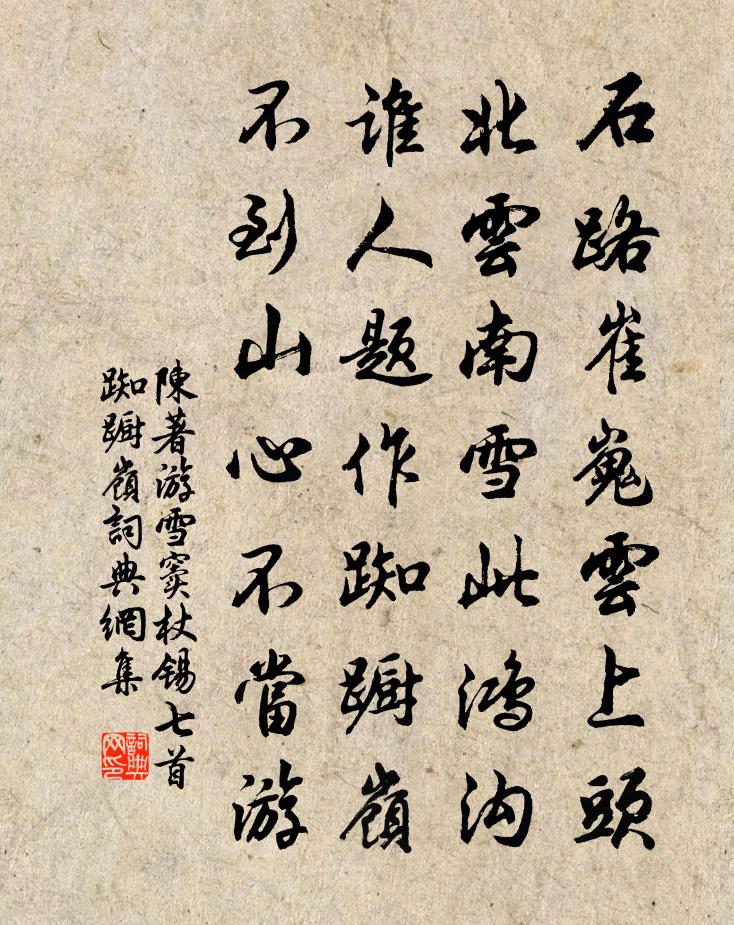 石路崔嵬雲上頭
北雲南雪此鴻沟
誰人題作踟蹰嶺
不到山心不當游
陳著游雪竇杖錫七首
踟蹰嶺詞典網集
詞典网印